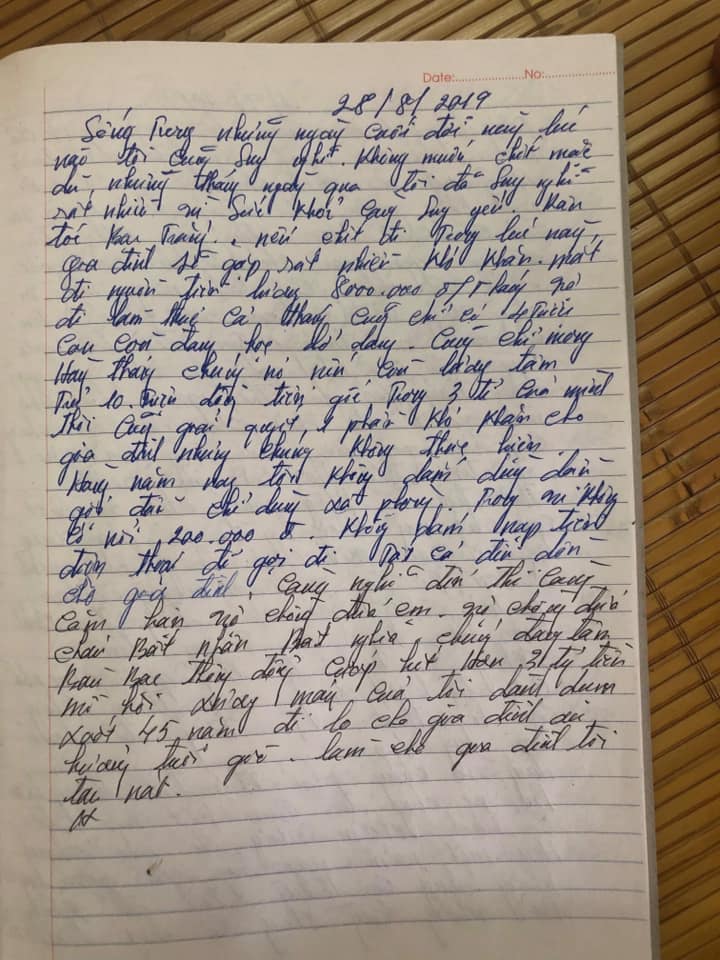 Date:...............No:...............
28/8/2019
Sống Trong những ngày cuối đời này lúc
nào tôi cũng Suy nghĩ. Không muốn chết mặc
dù những tháng ngày qua tôi đã Suy nghĩ
rất nhiều vì Sức khỏe càng Suy yếu. Hàn
tóc Bạc Trắng. nếu chết đi Trong lúc này,
gia đình sẽ gặp rất nhiều khó khăn. mất
đi nguồn tiền lương 8000.000 đ/Tháng vợ
đi làm thuê cả tháng cũng chỉ có 4 Triệu
Con còn đang học dở dang. Cũng chỉ mong
Hàng tháng chúng nó nếu còn lương tâm
Trả 10 Triệu đồng tiền gốc Trong 3 tỉ của mình
thôi cũng giải quyết 1 phần khó khăn cho
gia đình nhưng chúng không thực hiện.
Hàng năm nay tôi không dám dùng dầu
gội đầu chỉ dùng xà phòng. Trong ví không
có nổi 200.000 đ. Không dám nạp tiền
điện thoại để gọi đi Tất cả đều dồn
cho gia đình. Càng nghĩ đến thì càng
căm hận vợ chồng đứa em. vợ chồng đứa
cháu Bất nhân Bất nghĩa chúng đang tâm
Bàn Bạc thông đồng cướp hết Hơn 3 tỷ tiền
mồ hôi xương máu của tôi dành dụm
suốt 45 năm để lo cho gia đình an
hưởng tuổi già. làm cho gia đình tôi
tan nát.